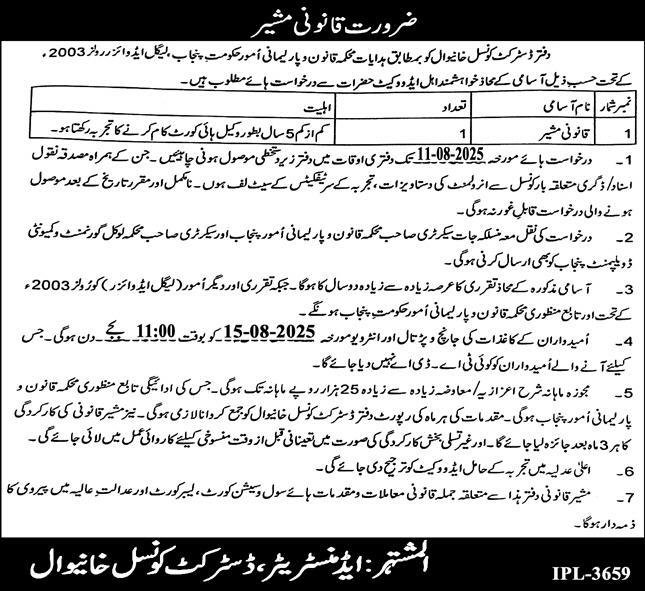 ضرورت قانونی مشیر
دفتر ڈسٹرکٹ کونسل خانیوال کو بمطابق ہدایات محکمہ قانون و پارلیمانی اُمور حکومت پنجاب، لیگل ایڈوائزر رولز 2003ء
کے تحت حسب ذیل آسامی کے محاذ خواہشمند اہل ایڈووکیٹ حضرات سے درخواست ہائے مطلوب ہیں۔
نمبر شمار نام آسامی تعداد اہلیت
1 قانونی مشیر 1 کم از کم 5 سال بطور وکیل ہائی کورٹ کام کرنے کا تجربہ رکھتا ہو۔
1۔ درخواست ہائے مورخہ 11-08-2025 تک دفتری اوقات میں دفتر زیر دستخطی موصول ہونی چاہئیں۔ جن کے ہمراہ مصدقہ نقول
اسناد/ڈگری متعلقہ بار کونسل سے انرولمنٹ کی دستاویزات، تجربہ کے سرٹیفکیٹس کے سیٹ لف ہوں۔ نامکمل اور مقررہ تاریخ کے بعد موصول
ہونے والی درخواست قابل غور نہ ہوگی۔
2۔ درخواست کی نقل معہ منسلکہ جات سیکرٹری صاحب محکمہ قانون و پارلیمانی اُمور پنجاب اور سیکرٹری صاحب محکمہ لوکل گورنمنٹ و کمیونٹی
ڈویلپمنٹ پنجاب کو بھی ارسال کرنی ہوگی۔
3۔ آسامی مذکورہ کے محاذ تقرری کا عرصہ زیادہ سے زیادہ دو سال کا ہوگا۔ جبکہ تقرری اور دیگر اُمور (لیگل ایڈوائزر) کو رولز 2003ء
کے تحت اور تابع منظوری محکمہ قانون و پارلیمانی اُمور حکومت پنجاب ہونگے۔
4۔ اُمیدواران کے کاغذات کی جانچ و پڑتال اور انٹرویو مورخہ 15-08-2025 کو بوقت 11:00 بجے دن ہوگی۔ جس
کیلئے آنے والے اُمیدواران کو کوئی ٹی اے۔ ڈی اے نہیں دیا جائے گا۔
5۔ مجوزہ ماہانہ شرح اعزازیہ/معاوضہ زیادہ سے زیادہ 25 ہزار روپے ماہانہ تک ہوگی۔ جس کی ادائیگی تابع منظوری محکمہ قانون و
پارلیمانی اُمور پنجاب ہوگی۔ مقدمات کی ہر ماہ کی رپورٹ دفتر ڈسٹرکٹ کونسل خانیوال کو جمع کروانا لازمی ہوگی۔ نیز مشیر قانونی کی کارکردگی
کا ہر 3 ماہ بعد جائزہ لیا جائے گا۔ اور غیر تسلی بخش کارکردگی کی صورت میں تعیناتی قبل از وقت منسوخی کیلئے کارروائی عمل میں لائی جائے گی۔
6۔ اعلیٰ عدلیہ میں تجربہ کے حامل ایڈووکیٹ کو ترجیح دی جائے گی۔
7۔ مشیر قانونی دفتر ہذا سے متعلقہ جملہ قانونی معاملات و مقدمات ہائے سول و سیشن کورٹ، لیبر کورٹ اور عدالت عالیہ میں پیروی کا
ذمہ دار ہوگا۔
المشتہر: ایڈمنسٹریٹر، ڈسٹرکٹ کونسل خانیوال
IPL-3659